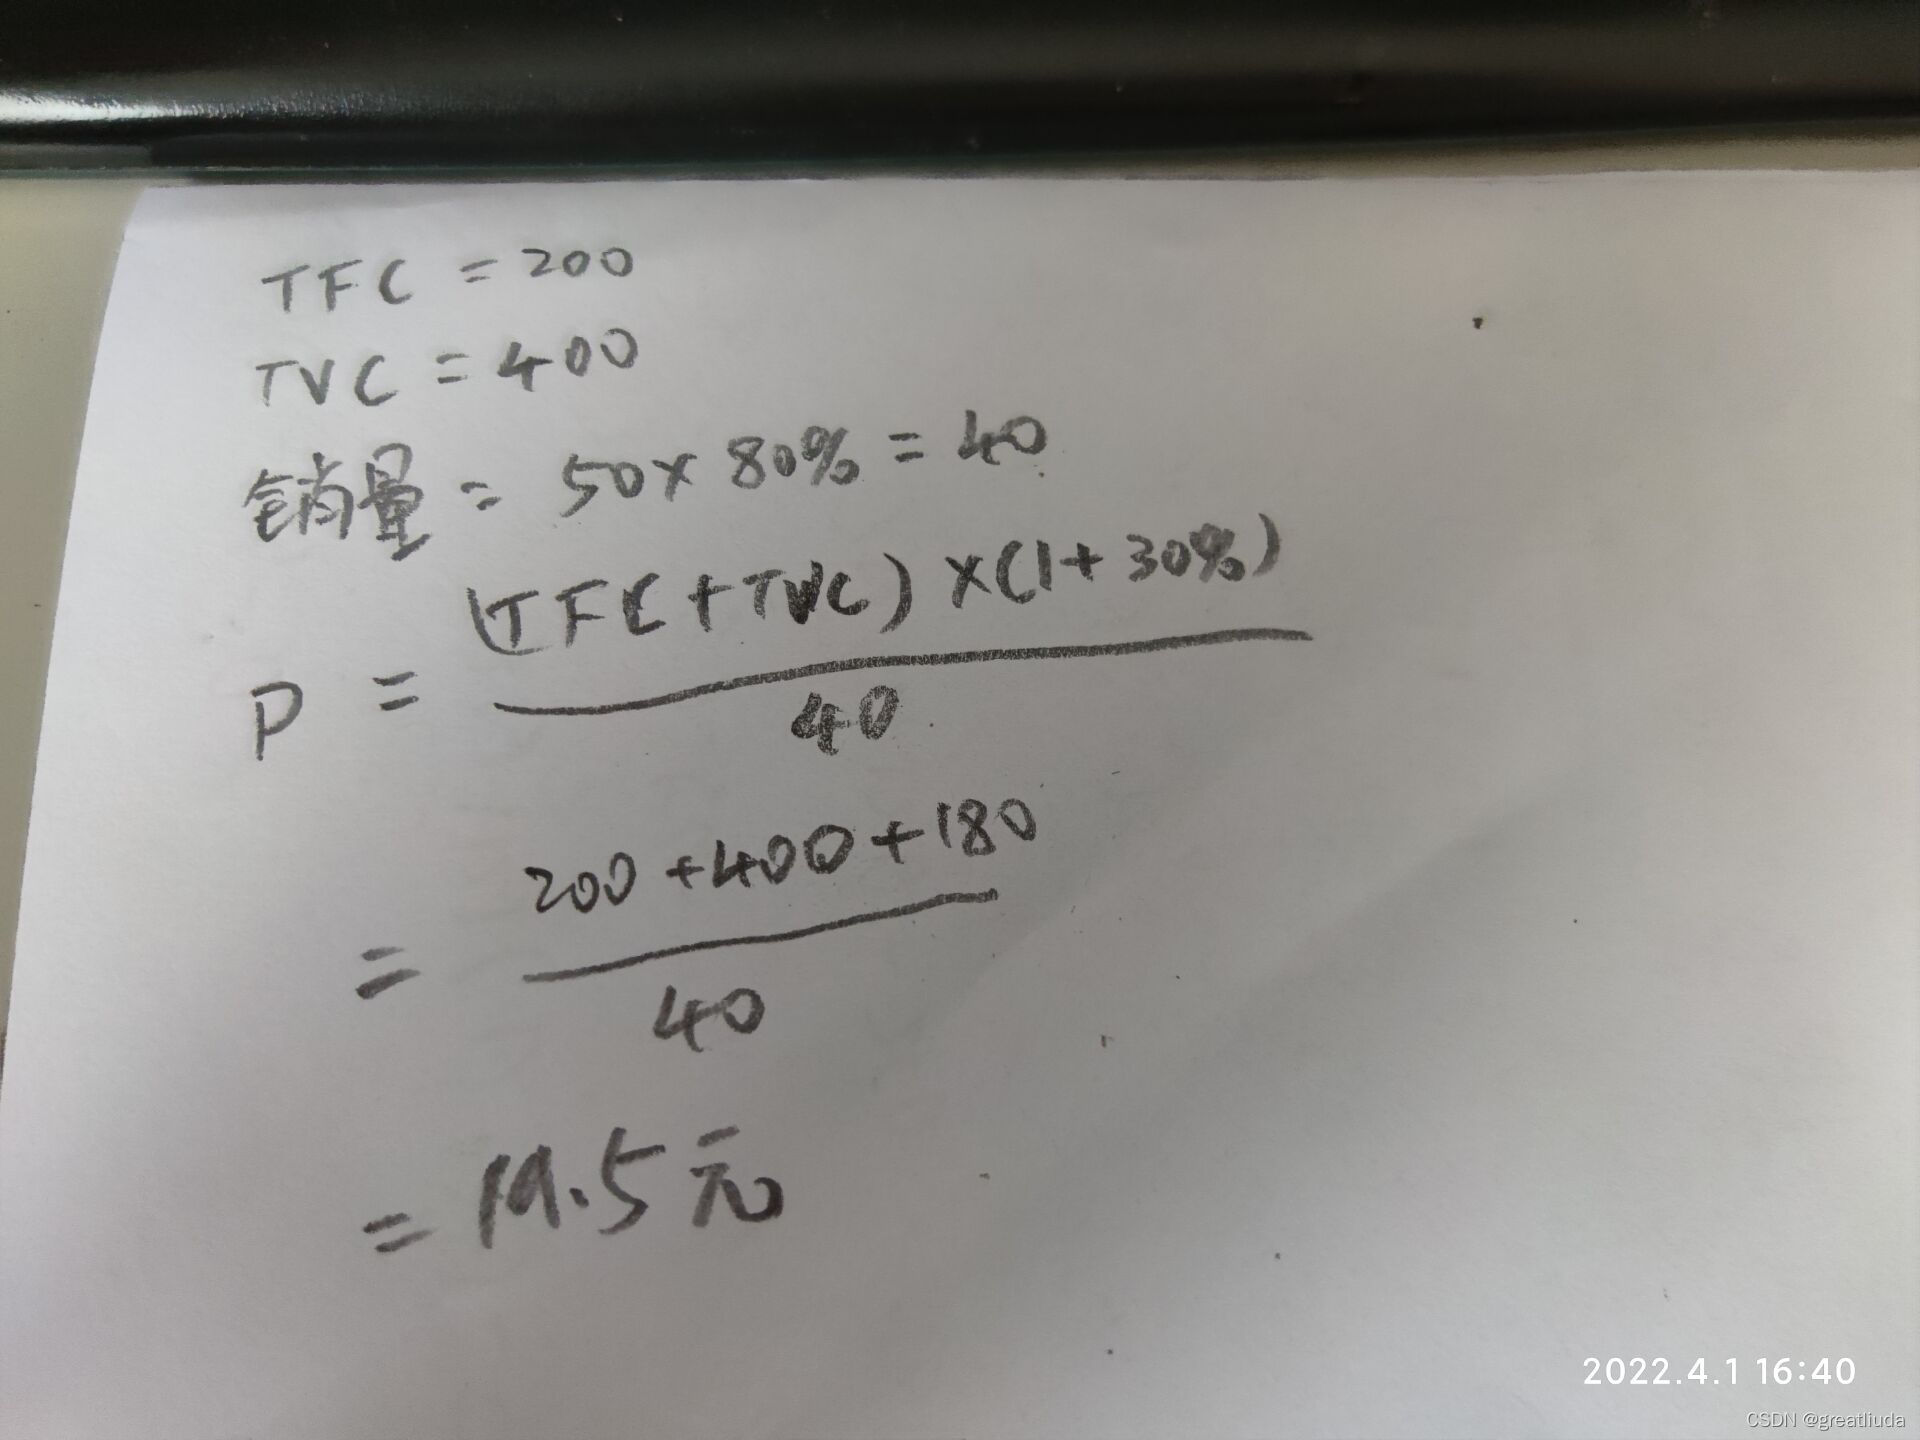 TFC = 200
TVC = 400
销量 = 50 × 80% = 40
P = (TFC + TVC) × (1 + 30%)
40
= 200 + 400 + 180
40
= 19.5 元
2022.4.1 16:40
CSDN @greatliuda